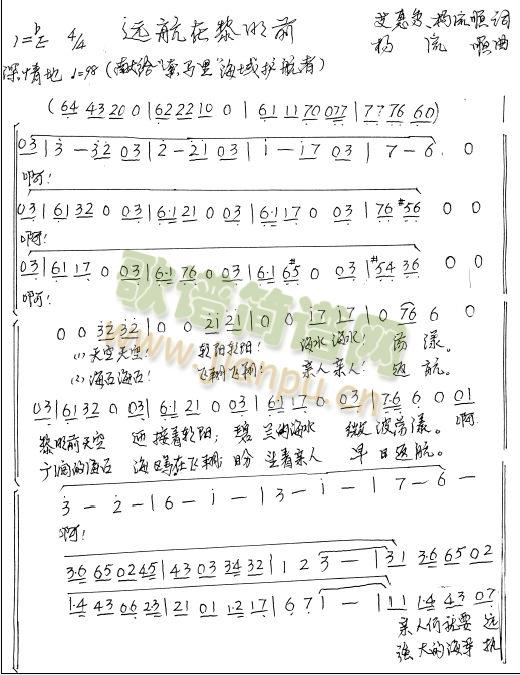 1=ᵇE 4/4 远航在黎明前
艾惠，杨流顺词
杨流顺曲
深情地 ♩=98 (献给"索马里"海域护航者)
(64 43 20 0 | 62 22 10 0 | 61 11 70 077 | 77 76 60)
03 | 3 - 32 03 | 2 - 21 03 | i - i7 03 | 7 - 6. 0
啊!
03 | 61 32 0 03 | 6·1 21 0 03 | 6·1 17 0 03 | 76 #56 0 0
啊!
03 | 61 17 0 03 | 6·1 76 0 03 | 6·1 6#5 0 03 | #54 36 0 0
啊!
0 0 32 32 | 0 0 21 21 | 0 0 17 17 | 0 76 6 0
(1) 天空天空! 朝阳朝阳! 海水海水! 荡漾。
(2) 海石海石! 飞翔飞翔! 亲人亲人! 返航。
03 | 61 32 0 03 | 61 21 0 03 | 6·1 17 0 03 | 7·6 6 0 01
黎明前天空 迎接着朝阳; 碧兰的海水 微波荡漾。 啊
海鸥在飞翔; 盼望着亲人 早日返航。
3 - 2 - | 6 - i - | 3 - i - | 7 - 6 -
啊!
3·6 65 02 45 | 43 03 34 32 | 1 2 3 - | 31 3·6 65 02
1·4 43 06 23 | 21 01 1·2 17 | 6 7 1 - | 11 1·4 43 07
亲人们就要 远
强大的海军 执
歌谱简谱网
www.jianpu.cn